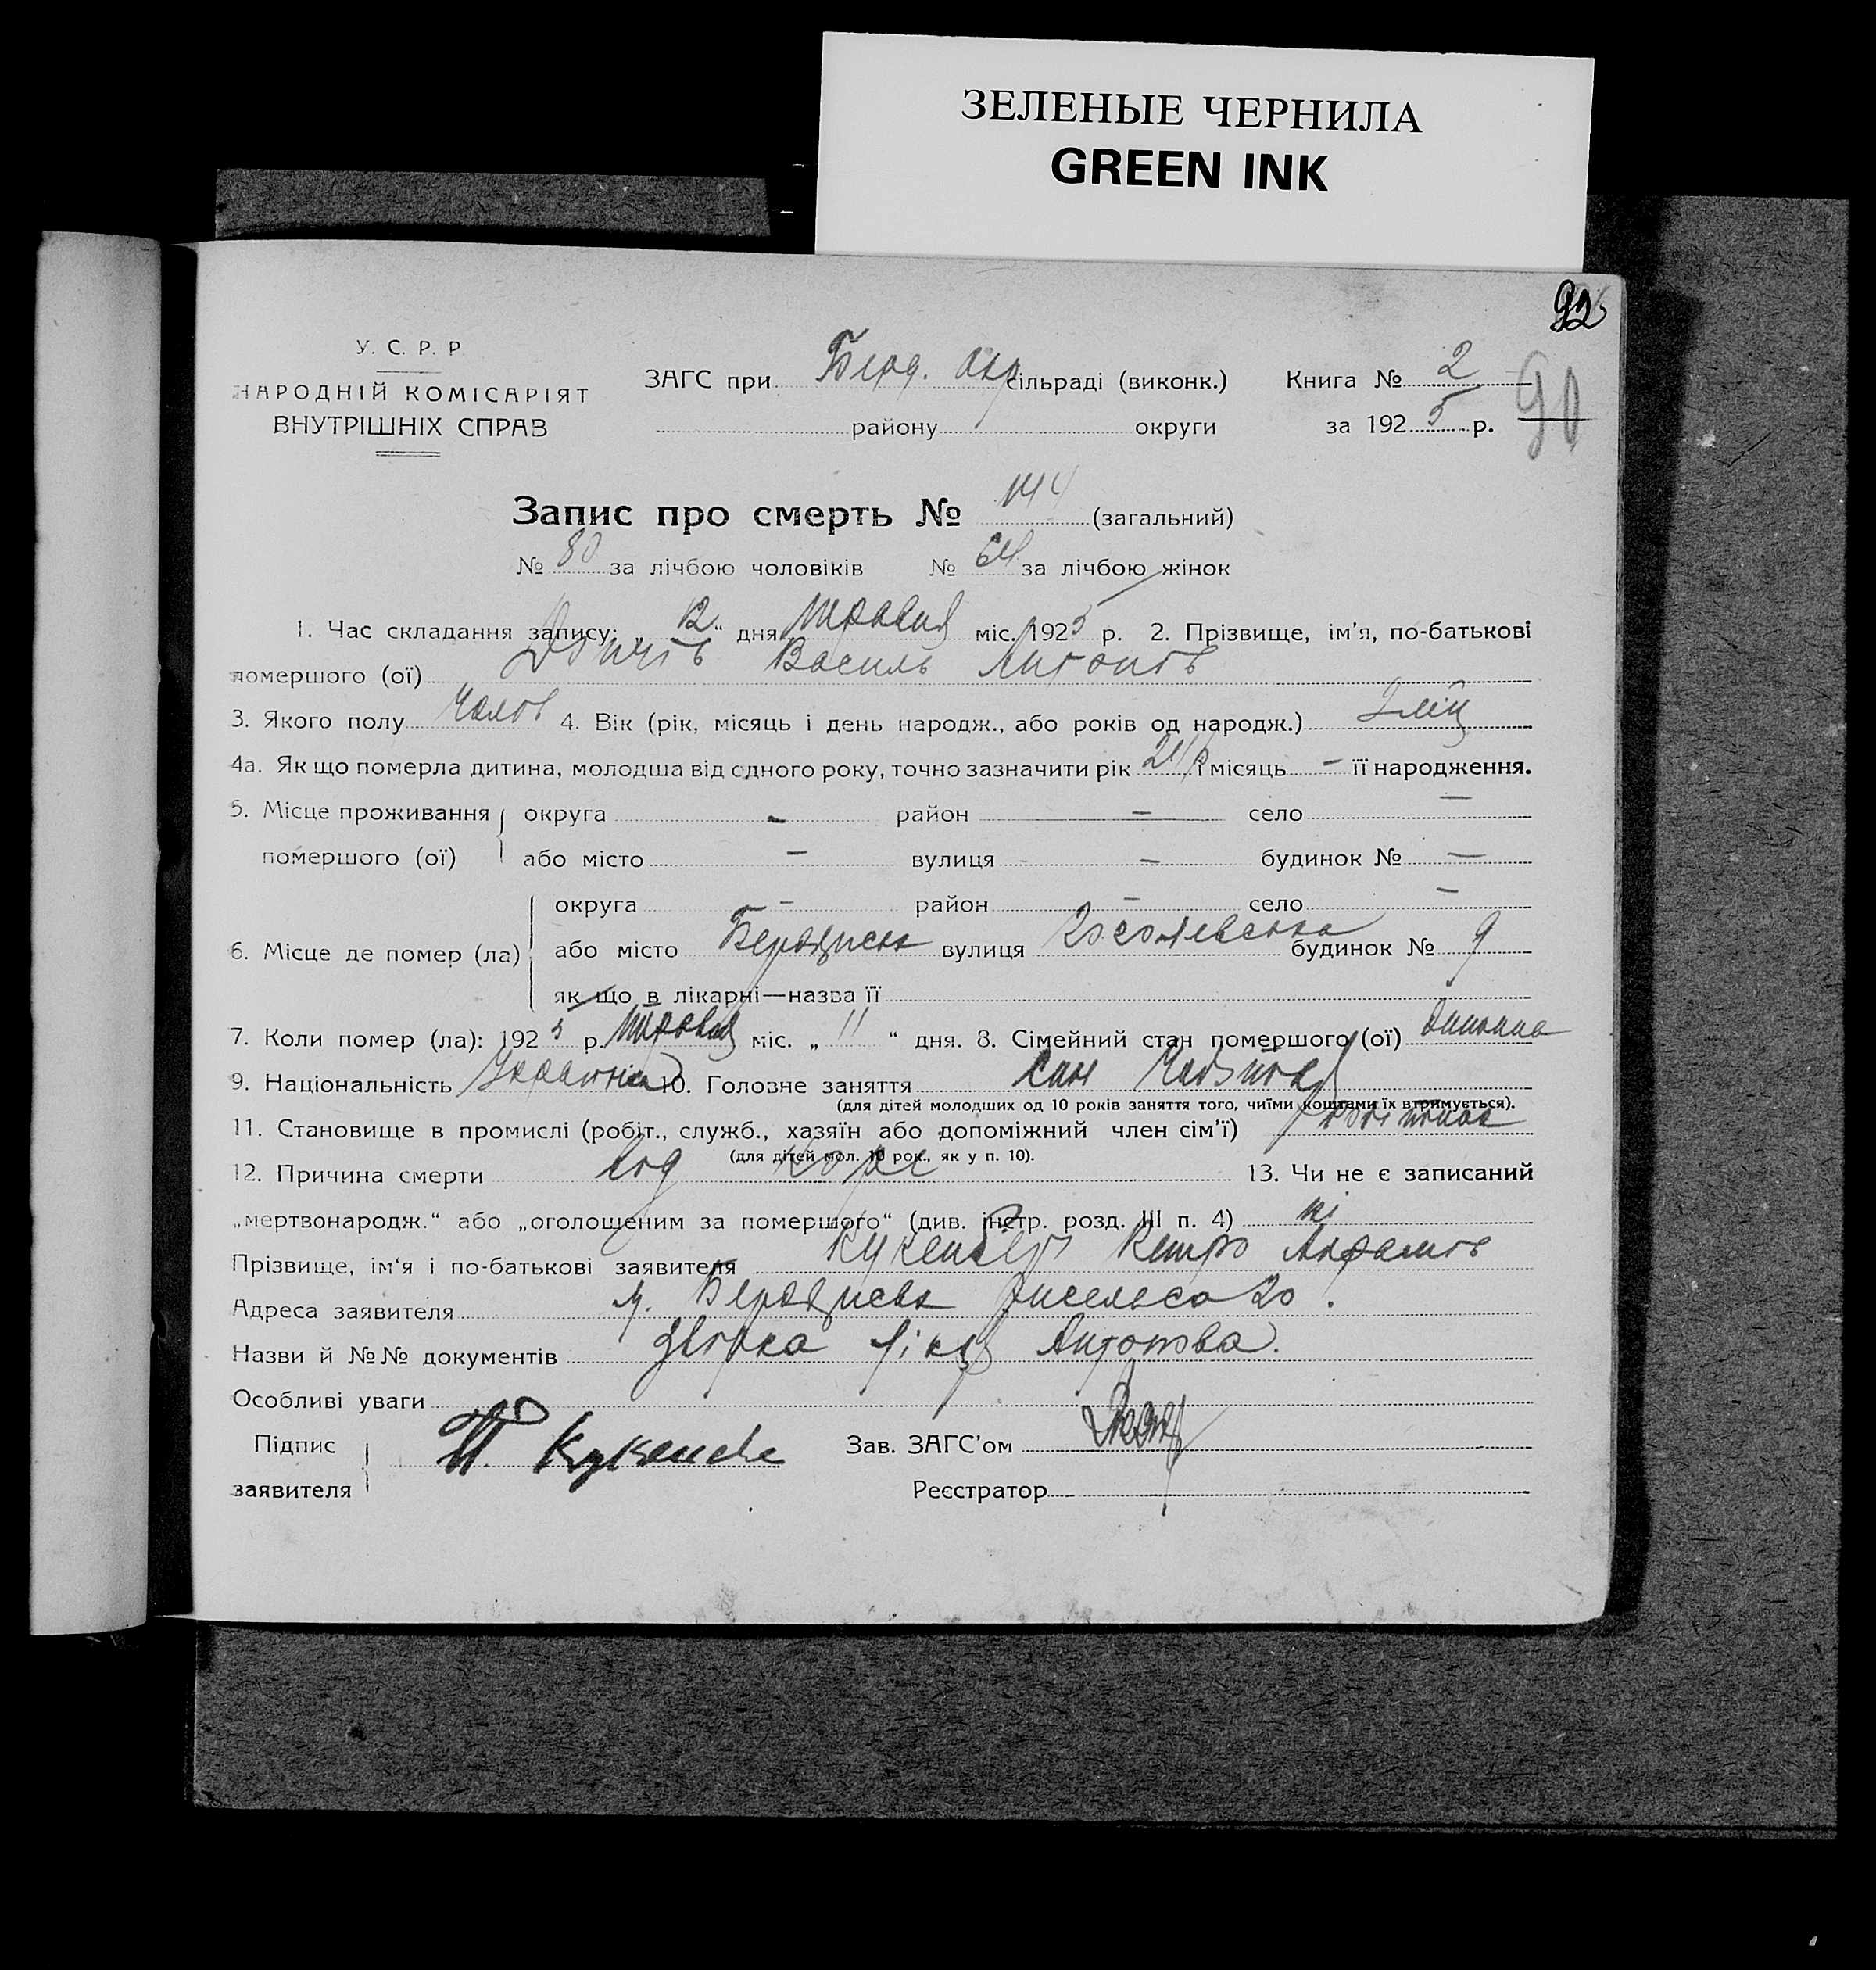 ЗЕЛЕНЫЕ ЧЕРНИЛА
GREEN INK
92
90
У. С. Р. Р
НАРОДНІЙ КОМІСАРІЯТ
ВНУТРІШНІХ СПРАВ
ЗАГС при Берд. Окр сільраді (виконк.) Книга № 2
району округи за 1925 р.
Запис про смерть № 144 (загальний)
№ 80 за лічбою чоловіків № 64 за лічбою жінок
1. Час складання запису: „ 12 “ дня Травня міс. 1925 р. 2. Прізвище, ім'я, по-батькові
помершого (ої) Василь Антонів
3. Якого полу Чолов 4. Вік (рік, місяць і день народж., або років од народж.)
4а. Як що померла дитина, молодша від одного року, точно зазначити рік і місяць – її народження.
5. Місце проживання округа – район – село –
помершого (ої) або місто – вулиця – будинок № –
округа – район – село –
6. Місце де помер (ла) або місто Бердичев вулиця будинок № 9
як що в лікарні—назва її
7. Коли помер (ла): 1925 р. Травня міс. „ 11 “ дня. 8. Сімейний стан помершого (ої)
9. Національність 10. Головне заняття син
(для дітей молодших од 10 років заняття того, чиїми коштами їх втримується).
11. Становище в промислі (робіт., служб., хазяїн або допоміжний член сім'ї)
(для дітей мол. 10 рок., як у п. 10).
12. Причина смерти 13. Чи не є записаний
„мертвонародж.“ або „оголошеним за помершого“ (див. інстр. розд. III п. 4) ні
Прізвище, ім'я і по-батькові заявителя Авраамів
Адреса заявителя м. Бердичев 20.
Назви й №№ документів довідка лікаря
Особливі уваги
Підпис
заявителя
Зав. ЗАГС'ом
Реєстратор